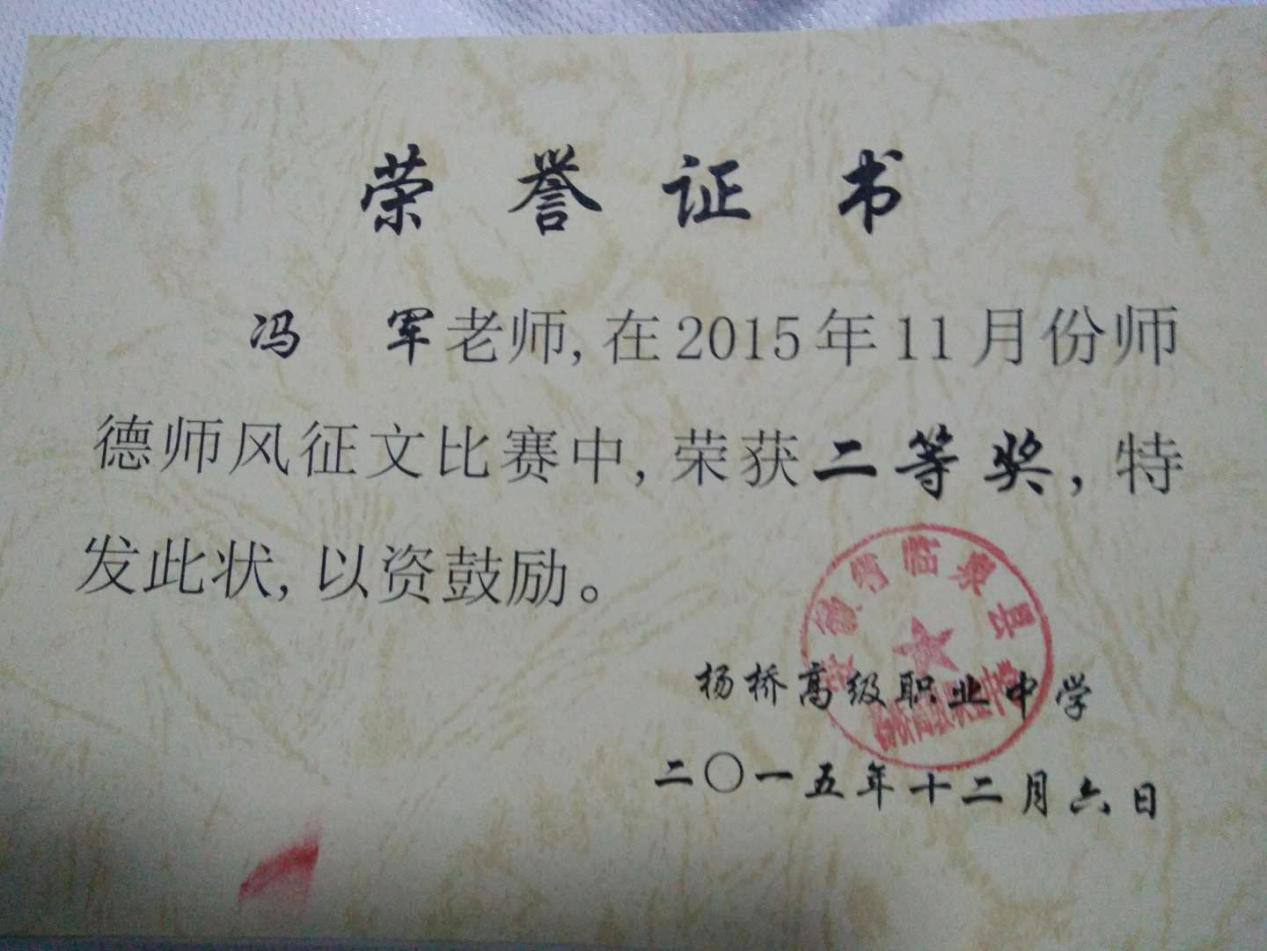 荣誉证书
冯 军老师,在2015年11月份师
德师风征文比赛中,荣获二等奖,特
发此状,以资鼓励。
安徽省临泉县
杨桥高级职业中学
杨桥高级职业中学
二〇一五年十二月六日